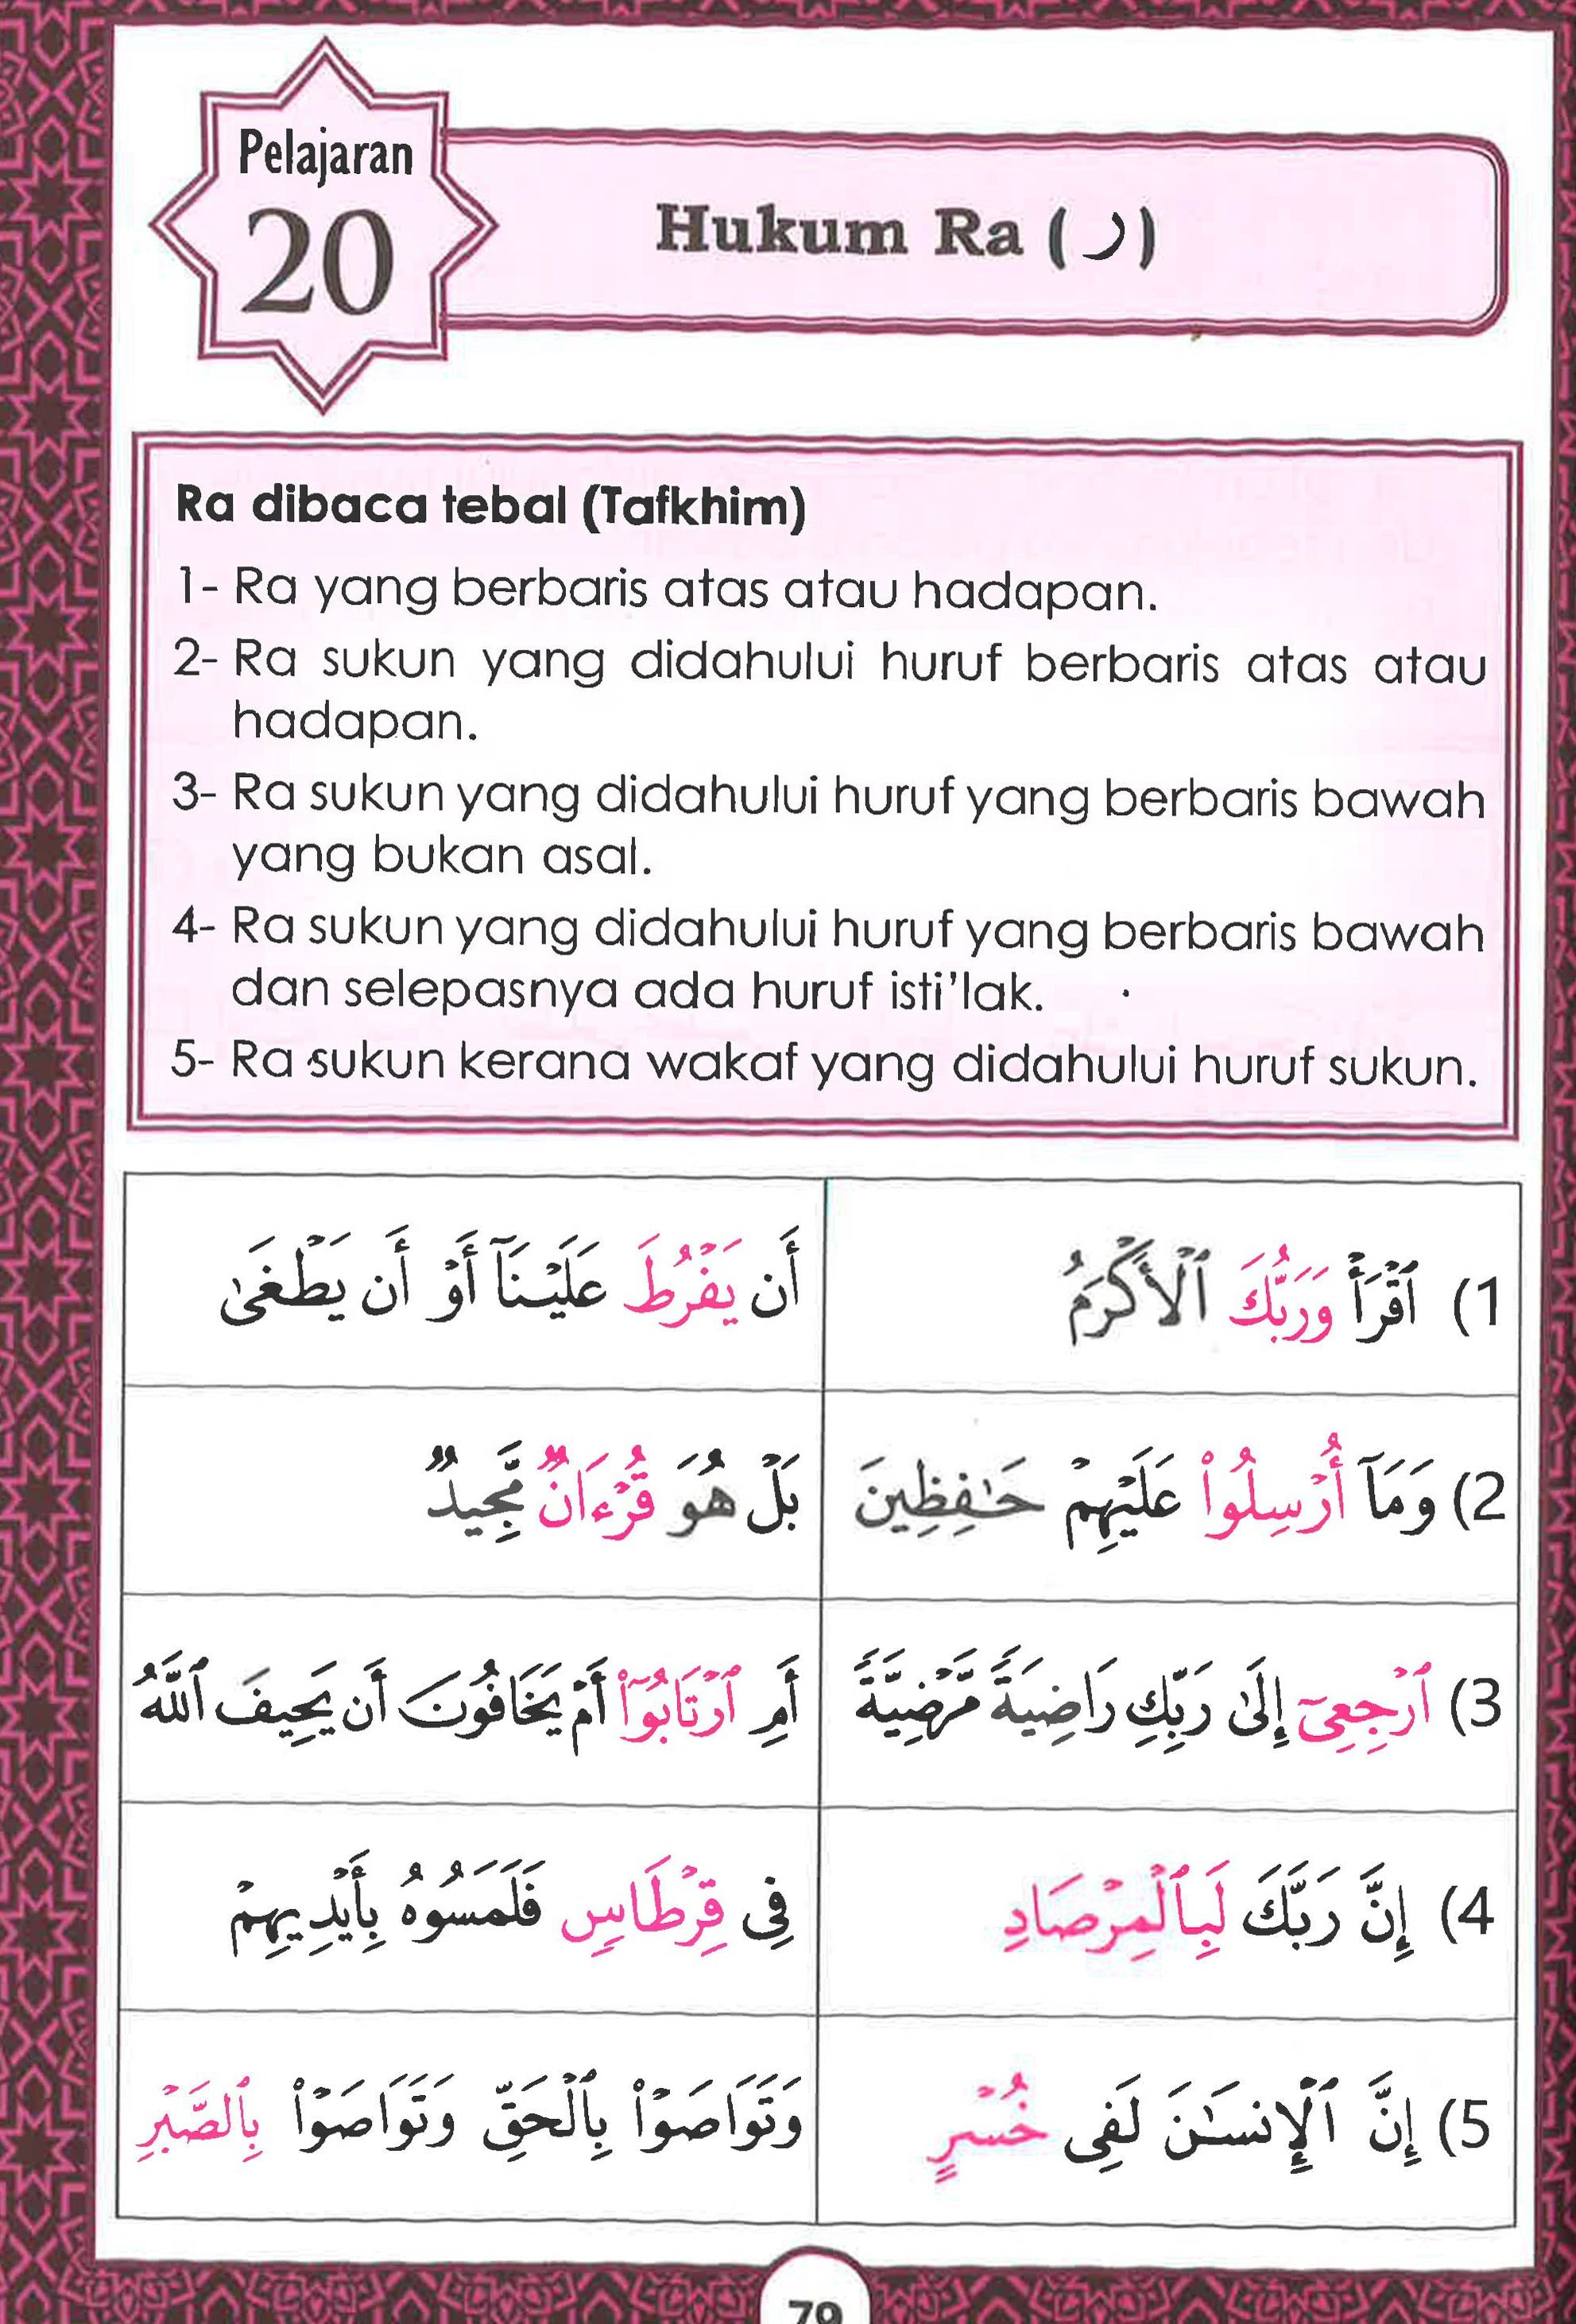 Pelajaran
20
Hukum Ra (ر)
Ra dibaca tebal (Tafkhim)
1- Ra yang berbaris atas atau hadapan.
2- Ra sukun yang didahului huruf berbaris atas atau
hadapan.
3- Ra sukun yang didahului huruf yang berbaris bawah
yang bukan asal.
4- Ra sukun yang didahului huruf yang berbaris bawah
dan selepasnya ada huruf isti'lak.
5- Ra sukun kerana wakaf yang didahului huruf sukun.
1) ٱقْرَأْ وَرَبُّكَ ٱلْأَكْرَمُ
أَن يَفْرُطَ عَلَيْنَآ أَوْ أَن يَطْغَىٰ
2) وَمَآ أُرْسِلُوا۟ عَلَيْهِمْ حَـٰفِظِينَ
بَلْ هُوَ قُرْءَانٌ مَّجِيدٌ
3) ٱرْجِعِىٓ إِلَىٰ رَبِّكِ رَاضِيَةً مَّرْضِيَّةً
أَمِ ٱرْتَابُوٓا۟ أَمْ يَخَافُونَ أَن يَحِيفَ ٱللَّهُ
4) إِنَّ رَبَّكَ لَبِٱلْمِرْصَادِ
فِى قِرْطَاسٍ فَلَمَسُوهُ بِأَيْدِيهِمْ
5) إِنَّ ٱلْإِنسَـٰنَ لَفِى خُسْرٍ
وَتَوَاصَوْا۟ بِٱلْحَقِّ وَتَوَاصَوْا۟ بِٱلصَّبْرِ
79